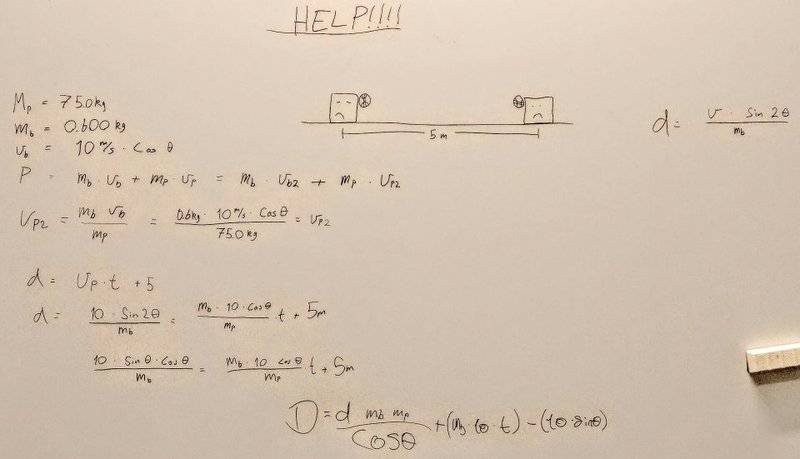 HELP!!!!
Mp = 75.0kg
mb = 0.600 kg
vb = 10 m/s · Cos θ
5 m
d = v · Sin 2θ / mb
P = mb · vb + mp · vp = mb · vb2 + mp · vp2
vp2 = mb vb / mp = 0.6kg · 10 m/s · Cosθ / 75.0 kg = vp2
d = vp · t + 5
d = 10 · Sin 2θ / mb = mb · 10 · Cosθ / mp t + 5m
10 · Sin θ · Cos θ / mb = mb · 10 cosθ / mp · t + 5m
D = d mb mp / COSθ + (mb 10 · t) - (10 · sinθ)